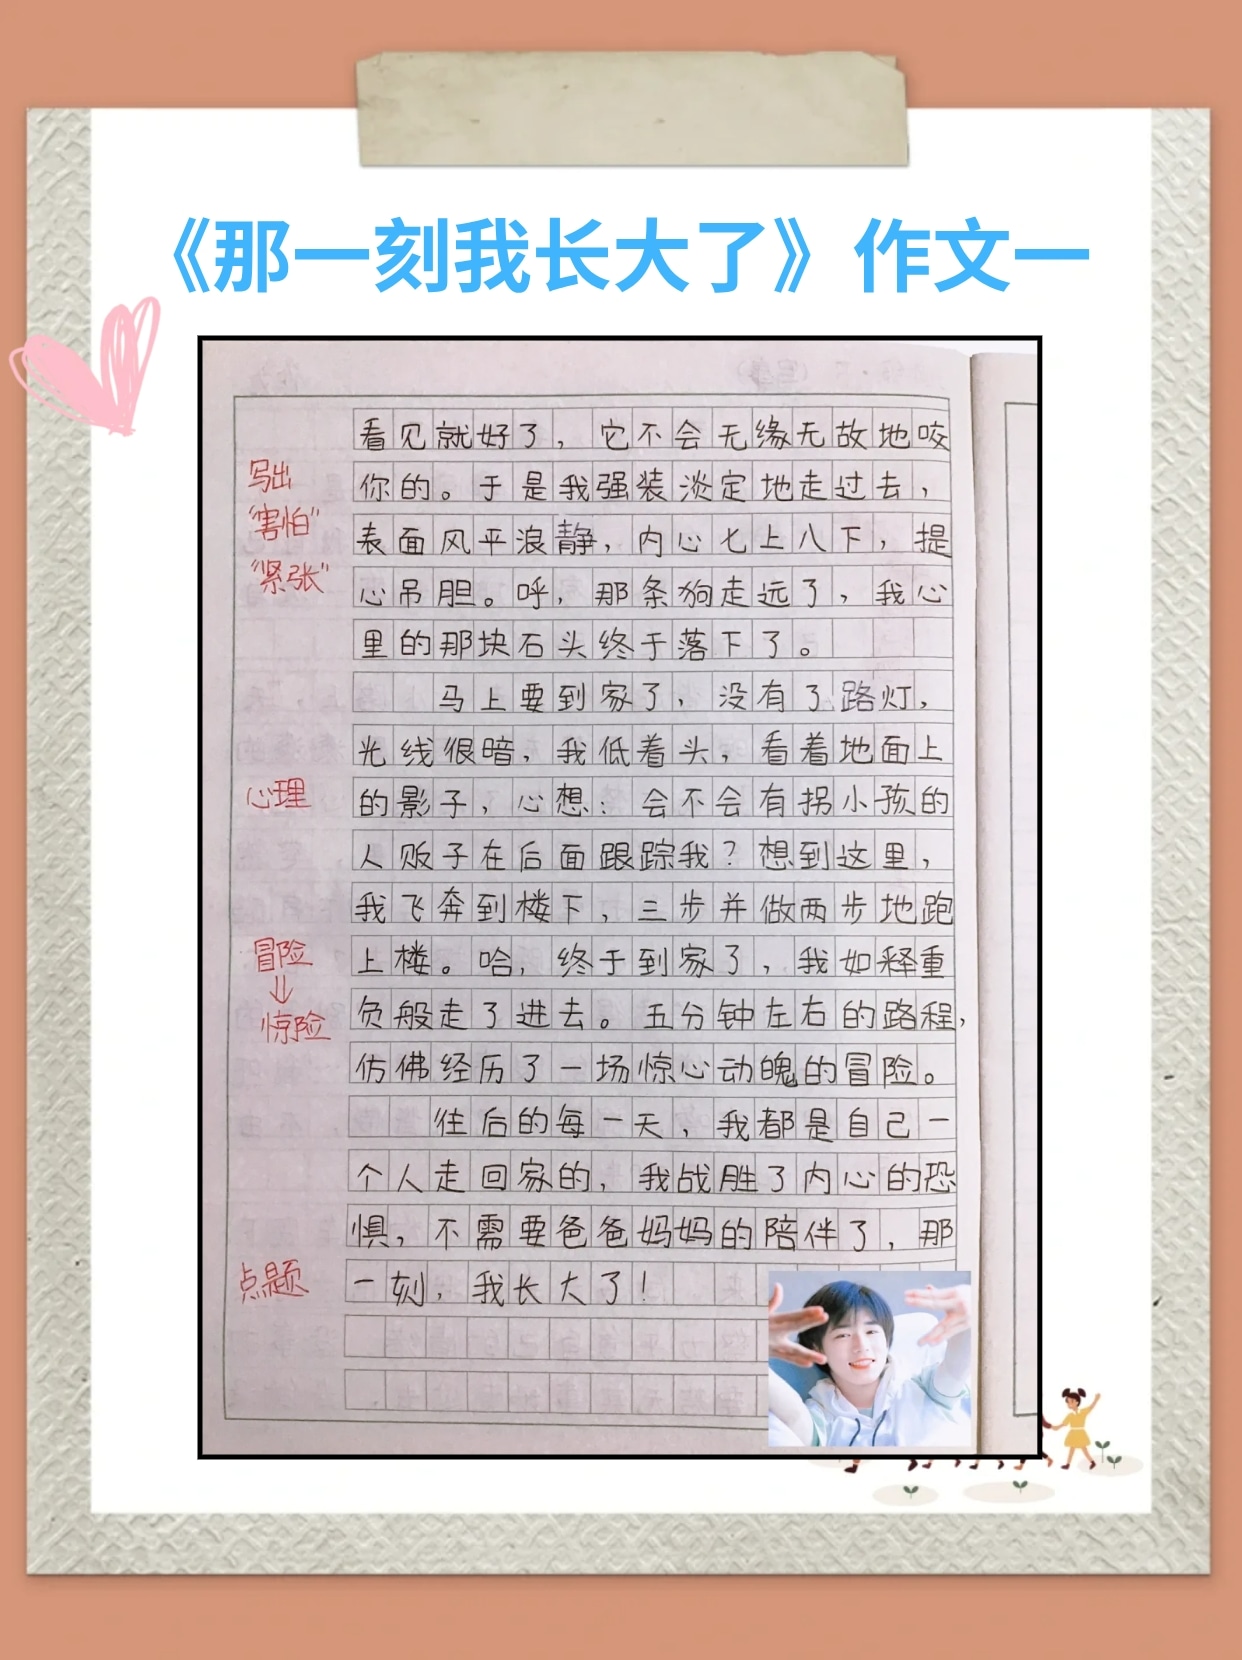 《那一刻我长大了》作文一
看见就好了，它不会无缘无故地咬
写出
你的。于是我强装淡定地走过去，
"害怕"
表面风平浪静，内心七上八下，提
"紧张"
心吊胆。呼，那条狗走远了，我心
里的那块石头终于落下了。
马上要到家了，没有了路灯，
光线很暗，我低着头，看着地面上
心理
的影子，心想：会不会有拐小孩的
人贩子在后面跟踪我？想到这里，
我飞奔到楼下，三步并做两步地跑
冒险
上楼。哈，终于到家了，我如释重
↓
负般走了进去。五分钟左右的路程，
惊险
仿佛经历了一场惊心动魄的冒险。
往后的每一天，我都是自己一
个人走回家的，我战胜了内心的恐
惧，不需要爸爸妈妈的陪伴了，那
点题
一刻，我长大了！